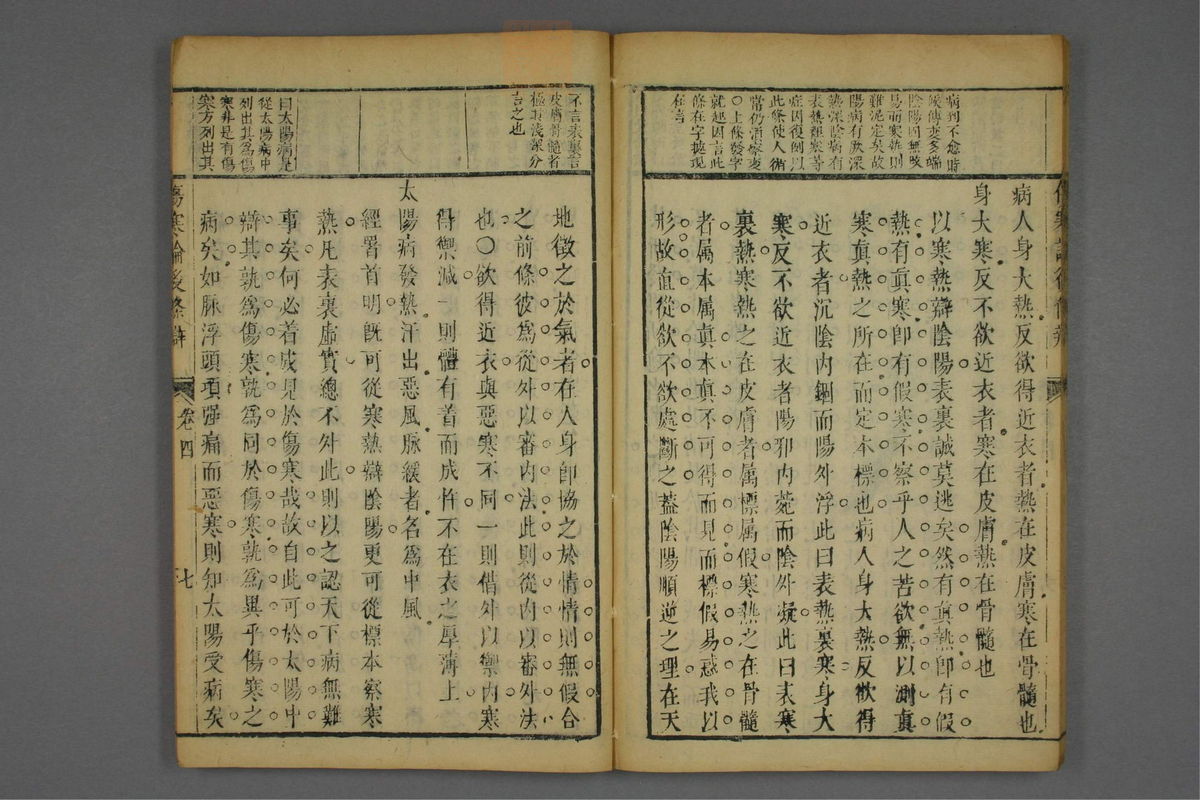 病到不愈時
陰陽固無
易而寒熱則
難泥定矣故
陽病有厥深
熱深陰病有
表熱裏寒等
症因復例以
此條使人術
常仍須察変
○上條發字
就起因言此
條在字據現
在言
病人身大熱反欲得近衣者熱在皮膚寒在骨髓也
身大寒反不欲近衣者寒在皮膚熱在骨髓也
以寒熱辯陰陽表裏誠莫逃矣然有真熱即有假
熱有真寒即有假寒不察乎人之苦欲無以測真
寒真熱之所在而定本標也病人身大熱反欲得
近衣者沉陰内錮而陽外浮此曰表熱裏寒身大
寒反不欲近衣者陽邪内菀而陰外凝此曰表寒
裏熱寒熱之在皮膚者属標属假寒熱之在骨髓
者属本属真本真不可得而見而標假易惑我以
形故直從欲不欲處斷之蓋陰陽順逆之理在天
不言表裏言
皮膚骨髓者
極其淺深分
言之也
曰太陽病是
從太陽病中
列出其為傷
寒非是有傷
寒方列出其
地徵之於氣者在人身即協之於情情則無假合
之前條彼為從外以審内法此則從内以審外法
也○欲得近衣與惡寒不同一則借外以禦内寒
得禦減一則體有着而成怍不在衣之厚薄上
太陽病發熱汗出惡風脉緩者名為中風
經署首明既可從寒熱辯陰陽更可從標本察寒
熱凡表裏虛實總不外此則以之認天下病無難
事矣何必着成見於傷寒哉故自此可於太陽中
辯其孰為傷寒孰為同於傷寒孰為異乎傷寒之
病矣如脉浮頭項强痛而惡寒則知太陽受病矣
傷寒論後條辯
卷四
七